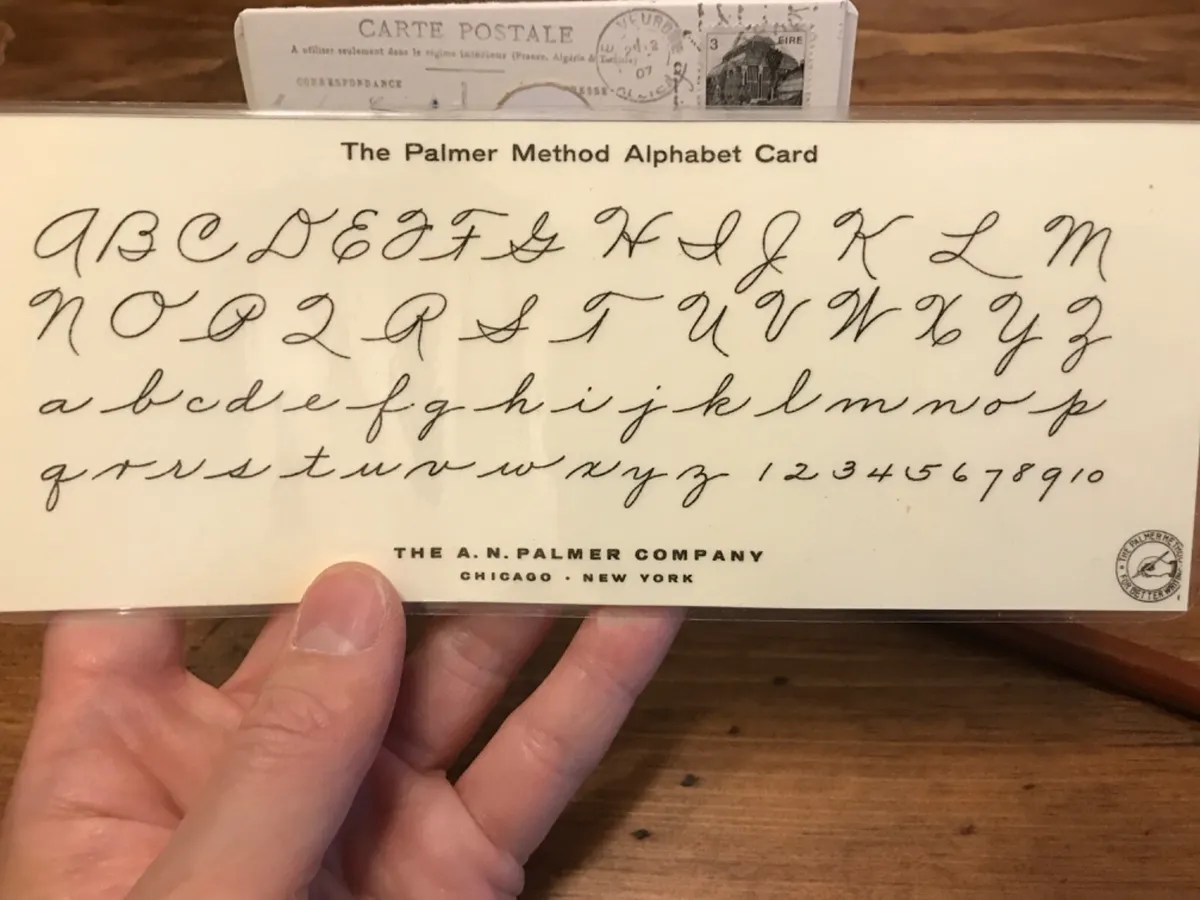 CARTE POSTALE
A utiliser seulement dans le régime intérieur (France, Algérie & Tunisie)
CORRESPONDANCE
3 EIRE
24-2
07
The Palmer Method Alphabet Card
A B C D E F F G H I J K L M
N O P Q R S T U V W X Y Z
a b c d e f g h i j k l m n o p
q r r s t u v w x y z 1 2 3 4 5 6 7 8 9 10
THE A. N. PALMER COMPANY
CHICAGO · NEW YORK
THE PALMER METHOD
FOR BETTER WRITING